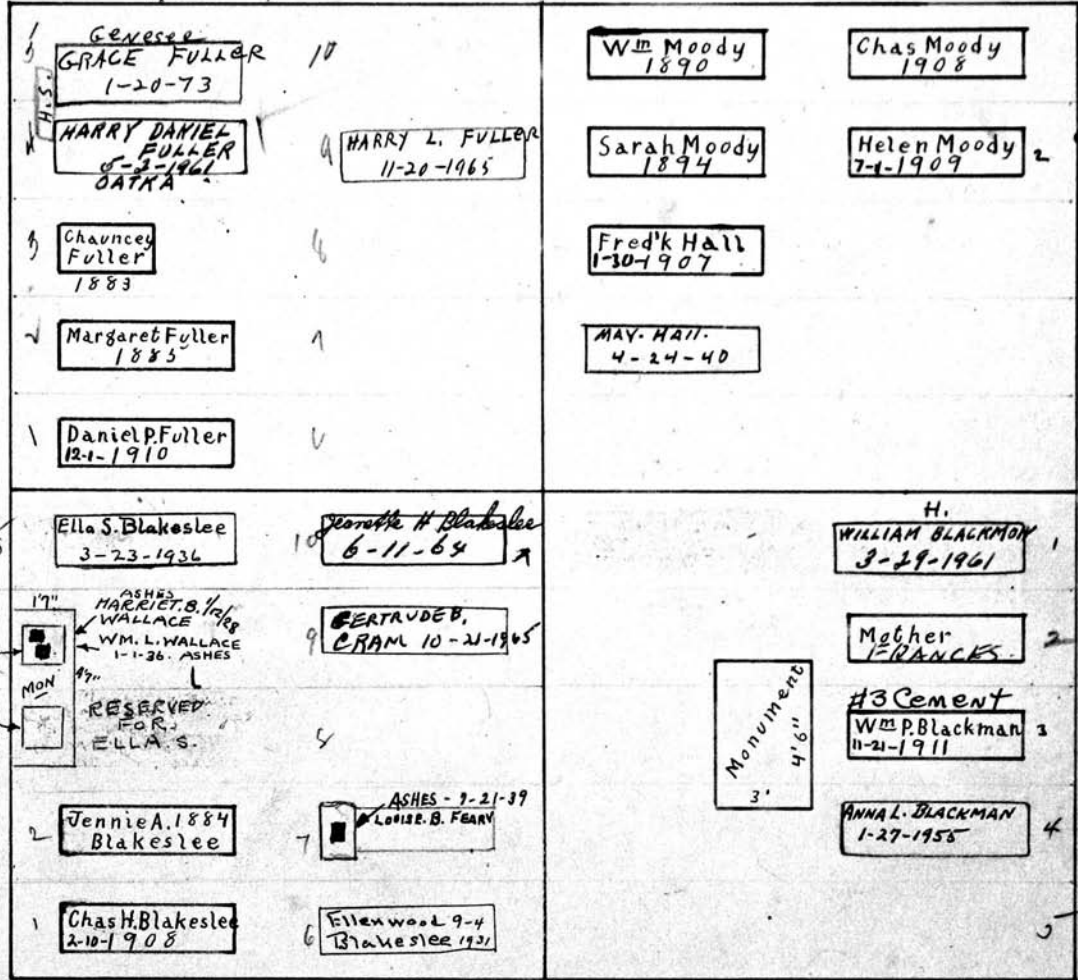 Genesee
GRACE FULLER
1-20-73
10
H.S.
HARRY DANIEL
FULLER
5-3-1961
OATKA
9
HARRY L. FULLER
11-20-1965
3
Chauncey
Fuller
1883
8
2
Margaret Fuller
1885
7
1
Daniel P. Fuller
12-1-1910
Wm Moody
1890
Chas Moody
1908
Sarah Moody
1894
Helen Moody
7-1-1909
2
Fred'k Hall
1-30-1907
MAY. HALL.
4-24-40
Ella S. Blakeslee
3-23-1936
10
Jeanette H Blakeslee
6-11-64
1'7"
ASHES
HARRIET. B. 1/12/28
WALLACE
WM. L. WALLACE
1-1-36. ASHES
MON
4'7"
RESERVED
FOR
ELLA S.
9
GERTRUDE B.
CRAM 10-21-1965
8
2
Jennie A. 1884
Blakeslee
7
ASHES - 9-21-39
LOUISE. B. FEARY
1
Chas H. Blakeslee
2-10-1908
6
Ellenwood 9-4
Blakeslee 1931
H.
WILLIAM BLACKMON
3-29-1961
1
Mother
FRANCES.
2
Monument
4'6"
3'
#3 Cement
Wm P. Blackman
11-21-1911
3
ANNA L. BLACKMAN
1-27-1955
4
5